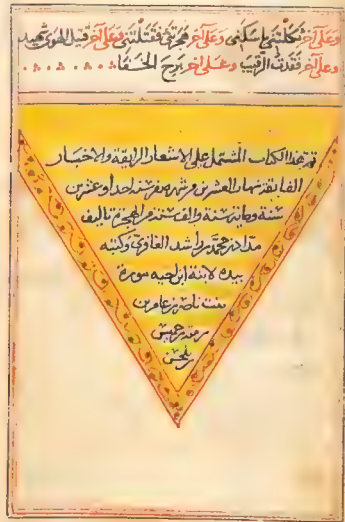 وعلى آخر ثكلتني وعلى آخر هجرتني فقتلتني وعلى آخر قتيل الهوى شهيد
وعلى آخر فقدت الرقيب وعلى آخر برح الخفا
تم هذا الكتاب المشتمل على الاشعار الرايقة والاخبار
الفايقة نهار العشرين من شهر صفر سنة احد وعشرين
سنة ومايتين سنة والف سنة من الهجرة تاليف
محمد بن راشد وكتبه
بيده لابنة اخيه سورة
بنت ناصر بن عامر بن
بن خميس